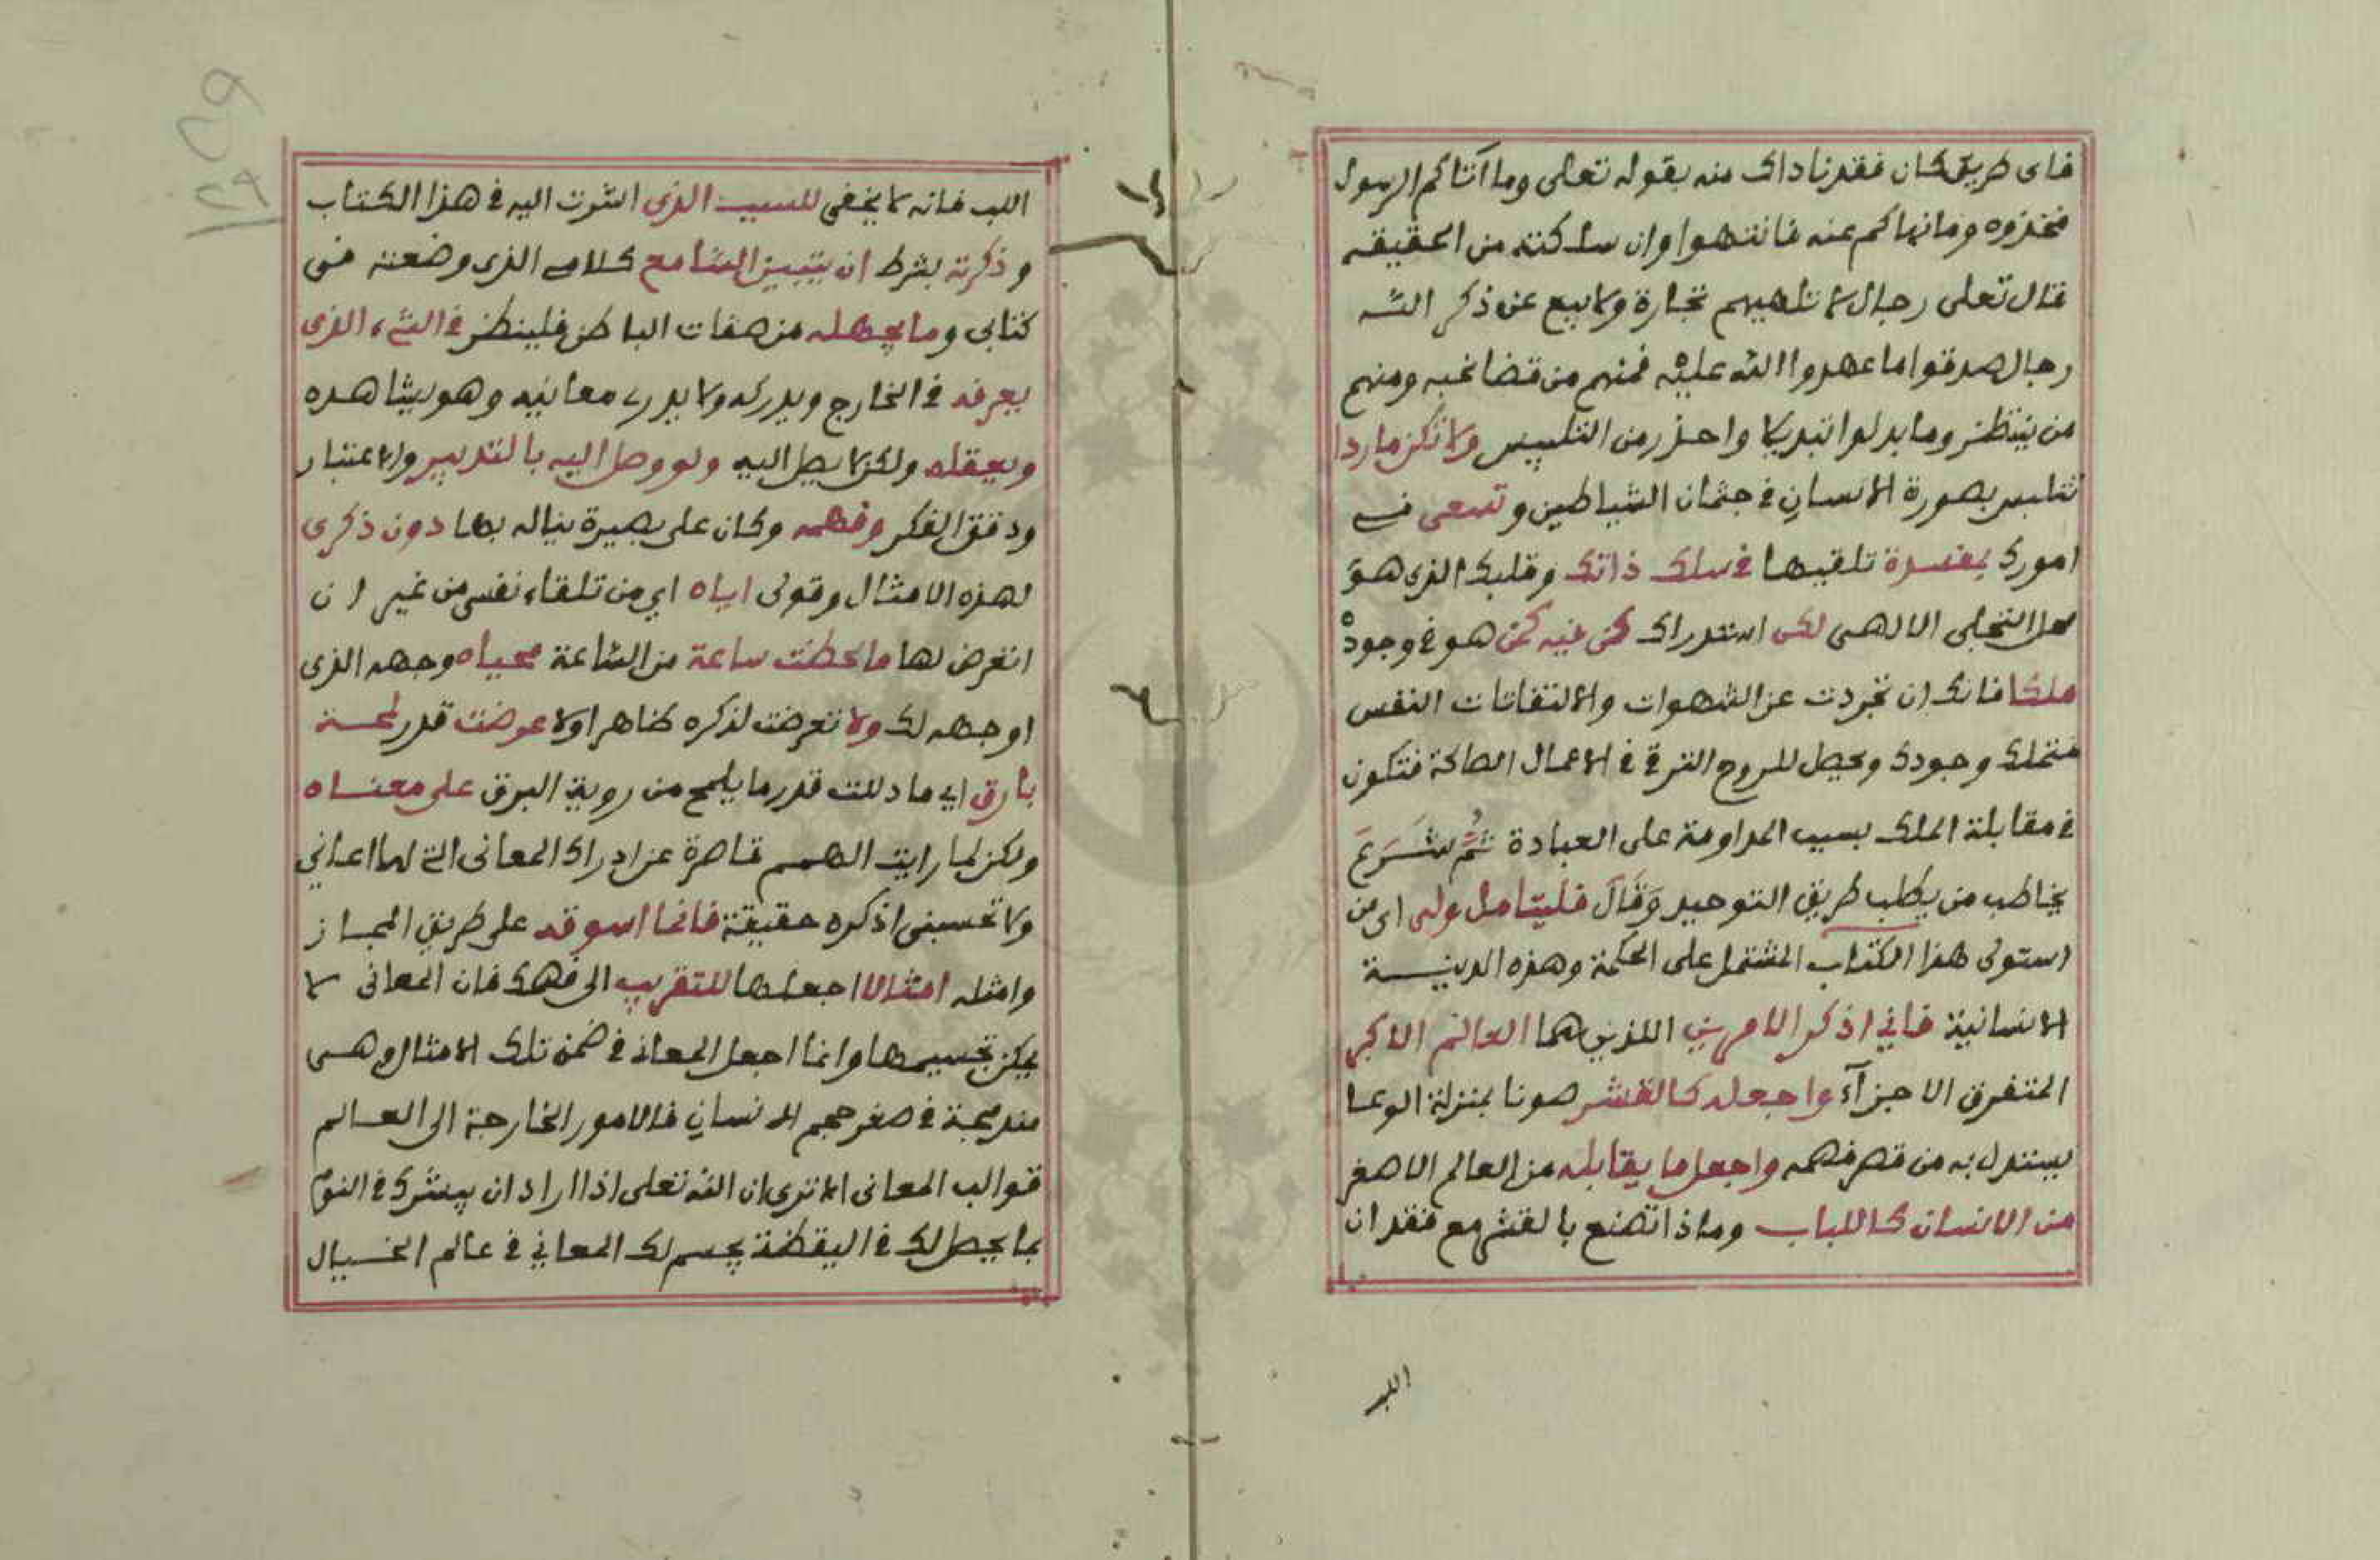 فاى طريق كان فقد ناداك منه بقوله تعلى وما آتاكم الرسول
فخذوه وما نهاكم عنه فانتهوا وان سلكته من الحقيقه
قال تعلى رجال لا تلهيهم تجارة ولا بيع عن ذكر الله
رجال صدقوا ما عهدوا الله عليه فمنهم من قضا نحبه ومنهم
من ينتظر وما بدلوا تبديلا واحذر من التلبيس ولا تكن ماردا
تتلبس بصورة الانسان في جثمان الشياطين وتسعى في
امورك بمفسدة تلقيها في سلك ذاتك وقلبك الذى هو
محل التجلى الالهى لكن استدراك كن فيه كمن هو في وجوده
ملكا فانك ان تجردت عن الشهوات والالتفاتات النفس
فتملك وجودك ويحصل للروح الترقى في الاعمال الصالحة فتكون
في مقابلة الملك بسبب المداومة على العبادة ثُمَّ شَرَعَ
يخاطب من يطلب طريق التوحيد وَقَالَ فليتامل ولى اى من
استولى هذا الكتاب المشتمل على الحكمة وهذه المدينـة
الانسانية فاني اذكر الامرين اللذين هما العالم الاكبر
المتفرق الاجزآء واجعله كالقشر صونا بمنزلة الوعا
ليستدل به من قصر فهمه واجعل ما يقابله من العالم الاصغر
من الانسان كاللباب وماذا تصنع بالقشر مع فقدان
اللب
اللب فانه لا يخفى للسبب الذى اشرت اليه في هذا الكتاب
وذكرته بشرط ان يتبين السامع كلامى الذى وضعته فى
كتابى وما يجهله من صفات الباطن فلينظر في الشيء الذى
يعرفه في الخارج ويدركه ولا يدرى معانيه وهو يشاهده
ويعقله ولكن لا يصل اليه ولو وصل اليه بالتدبير والاعتبار
ودقق الفكر وفهمه وكان على بصيرة يناله بها دون ذكرى
لهذه الامثال وقولى اياه اي من تلقاء نفسى من غير ان
اتعرض لها ما لحظت ساعة من الساعة محياه وجهه الذى
اوجهه لك ولا تعرضت لذكره ظاهرا ولا عرضت قدر لمحـة
بارق اي ما دللت قدر ما يلمح من روية البرق على معناه
ولكن لما رايت الهمم قاصرة عن ادراك المعانى التي لها اعاني
ولا تحسبنى اذكره حقيقة فانما اسوقه على طريق المجاز
وامثله امثالا اجعلها للتقريب الى فهمك فان المعانى لا
يمكن تجسيمها وانما اجعل المعان في ضمن تلك الامثال وهى
مندمجة في صغر حجم الانسان فالامور الخارجة الى العالم
قوالب المعانى الا ترى ان الله تعلى اذا اراد ان يبشرك في النوم
بما يحصل لك في اليقظة يجسم لك المعاني في عالم الخيال
٢٩